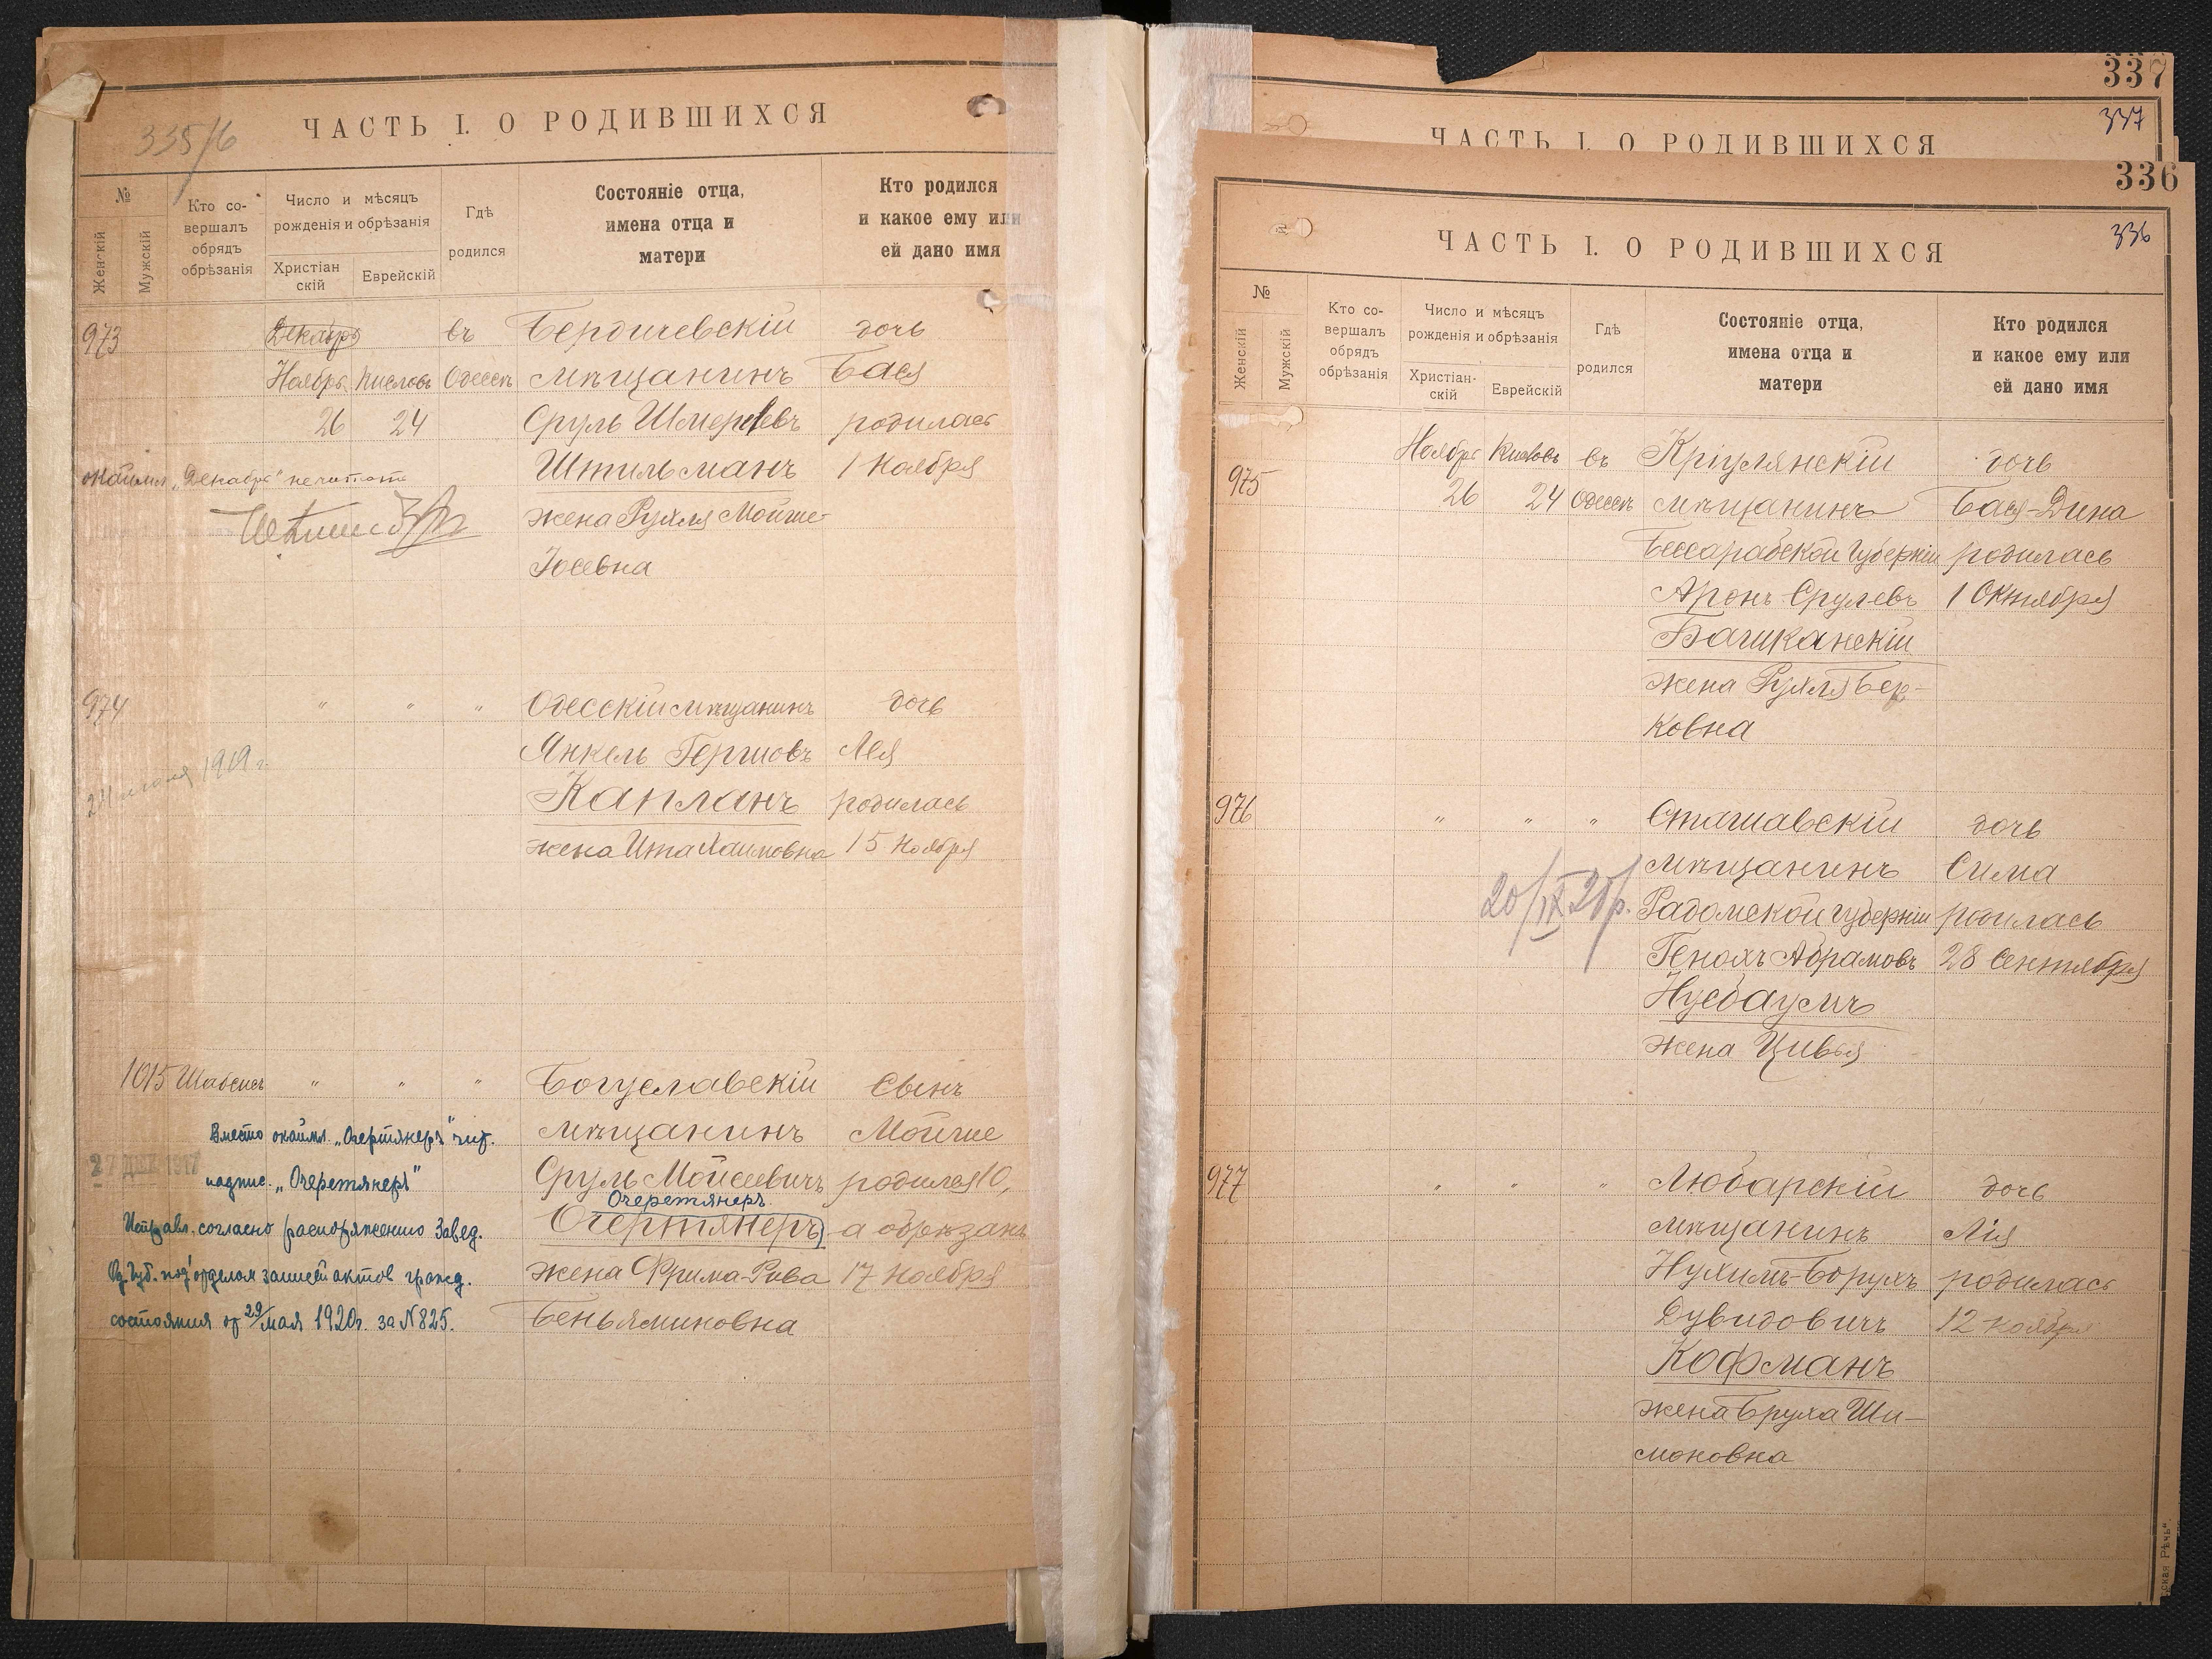 335/б
ЧАСТЬ I. О РОДИВШИХСЯ
№
Женскій
Мужскій
Кто со-
вершалъ
обрядъ
обрѣзанія
Число и мѣсяцъ
рожденія и обрѣзанія
Христіан
скій
Еврейскій
Гдѣ
родился
Состояніе отца,
имена отца и
матери
Кто родился
и какое ему или
ей дано имя
973 Декабрь въ Бердичевскій дочь
Ноябрь Кислевъ Одессѣ мѣщанинъ Бася
26 24 Сруль Шмерлевъ родилась
окаймл. „Декабрь" не читать Штильманъ 1 Ноября
жена Рухля Мойше-
Іосевна
974 " " " Одесскій мѣщанинъ дочь
Янкель Гершовъ Лея
1919 г.
Капланъ родилась
жена Ита Хаимовна 15 Ноября
1015 Шабсисъ " " " Богуславскій Сынъ
Вместо окаймл. „Очертянеръ" чит. мѣщанинъ Мойше
27 ДЕК 1917
надпис. „Очеретянеръ" Сруль Мойсеевичъ родился 10,
Очеретянеръ
Исправл. согласно распоряжению Завед. Очертянеръ а обрѣзанъ
Од. Губ. под'отделом записей актов гражд. жена Фрима-Рива 17 Ноября
состояния от 29/мая 1920г. за №825. Беньяминовна
337
337
ЧАСТЬ I. О РОДИВШИХСЯ
336
336
ЧАСТЬ I. О РОДИВШИХСЯ
№
Женскій
Мужскій
Кто со-
вершалъ
обрядъ
обрѣзанія
Число и мѣсяцъ
рожденія и обрѣзанія
Христіан-
скій
Еврейскій
Гдѣ
родился
Состояніе отца,
имена отца и
матери
Кто родился
и какое ему или
ей дано имя
975 Ноябрь Кислевъ въ Кріулянскій дочь
26 24 Одессѣ мѣщанинъ Бася-Дина
Бессарабской Губерніи родилась
Аронъ Срулевъ 1 Октября
Башканскій
жена Рухля Бер-
ковна
976 " " " Сташавскій дочь
мѣщанинъ Сима
20/IX 20 г. Радомской губерніи родилась
Генохъ Абрамовъ 28 Сентября
Нусбаумъ
жена Цивья
977 " " " Любарскій дочь
мѣщанинъ Лія
Нухимъ-Борухъ родилась
Дувидовичъ 12 ноября
Кофманъ
жена Бруха Ши-
моновна
ская Рѣчь"